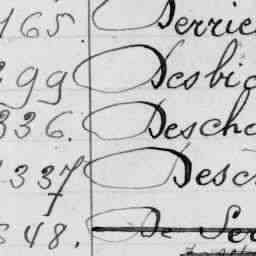 165. Derrie
99 Desbi
336. Desch
337 Desc
648. De Ser